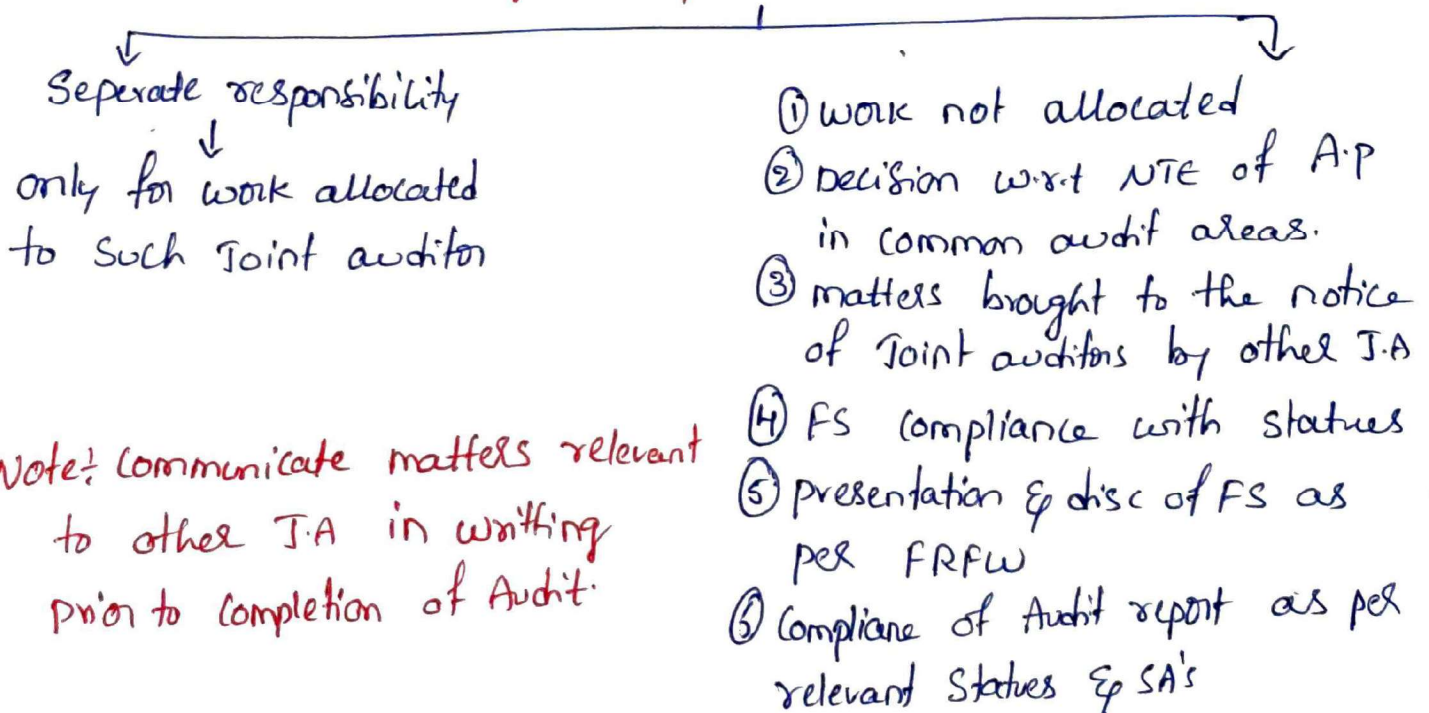 Seperate responsibility
only for work allocated
to such Joint auditor
Note: Communicate matters relevant
to other J.A in writting
prior to Completion of Audit.
① work not allocated
② Decision w.r.t NTE of A.p
in common audit areas.
③ matters brought to the notice
of Joint auditors by other J.A
④ FS compliance with statues
⑤ presentation & disc of FS as
per FRFW
⑥ Compliane of Audit report as per
relevant Statues & SA's